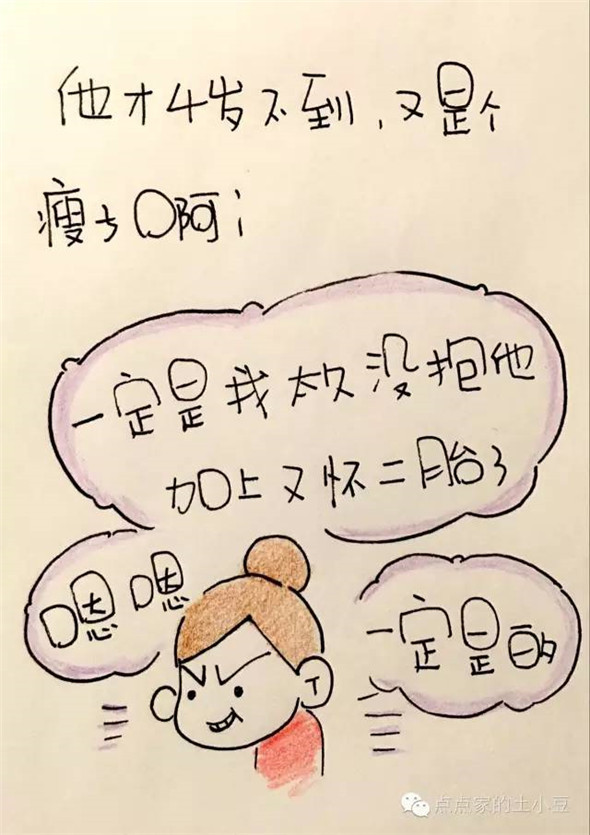 他才4岁不到,又是个
瘦子啊!
一定是我太久没抱他
加上又怀二胎了
嗯嗯
一定是的
点点家的土小豆